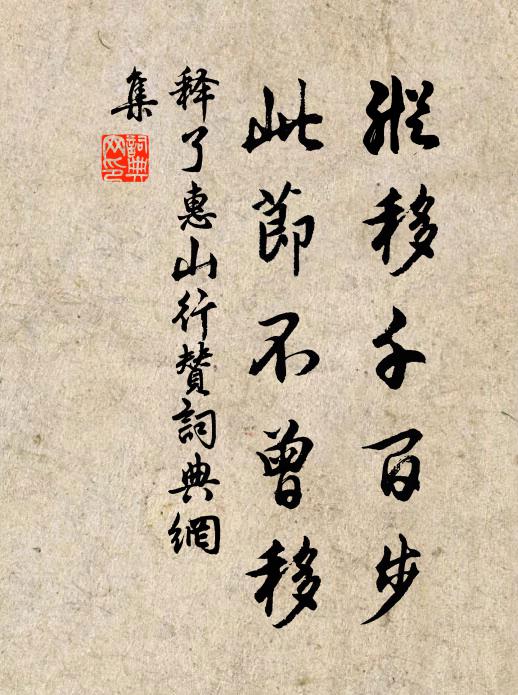 縱移千百步
此節不曾移
釋了惠山行贊詞典網
集
詞典
网印